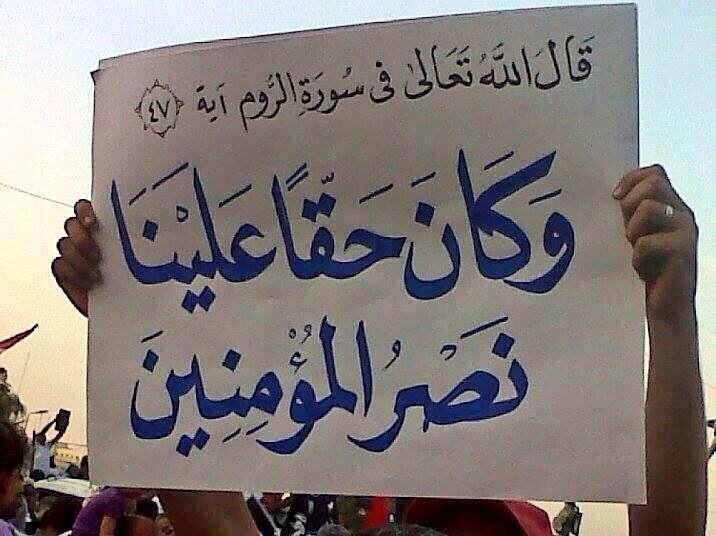 قَالَ اللَّهُ تَعَالىٰ فى سُورَةِ الرُّوم آيَة ٤٧
وَكَانَ حَقّاً عَلَيْنَا
نَصْرُ المُؤْمِنِينَ